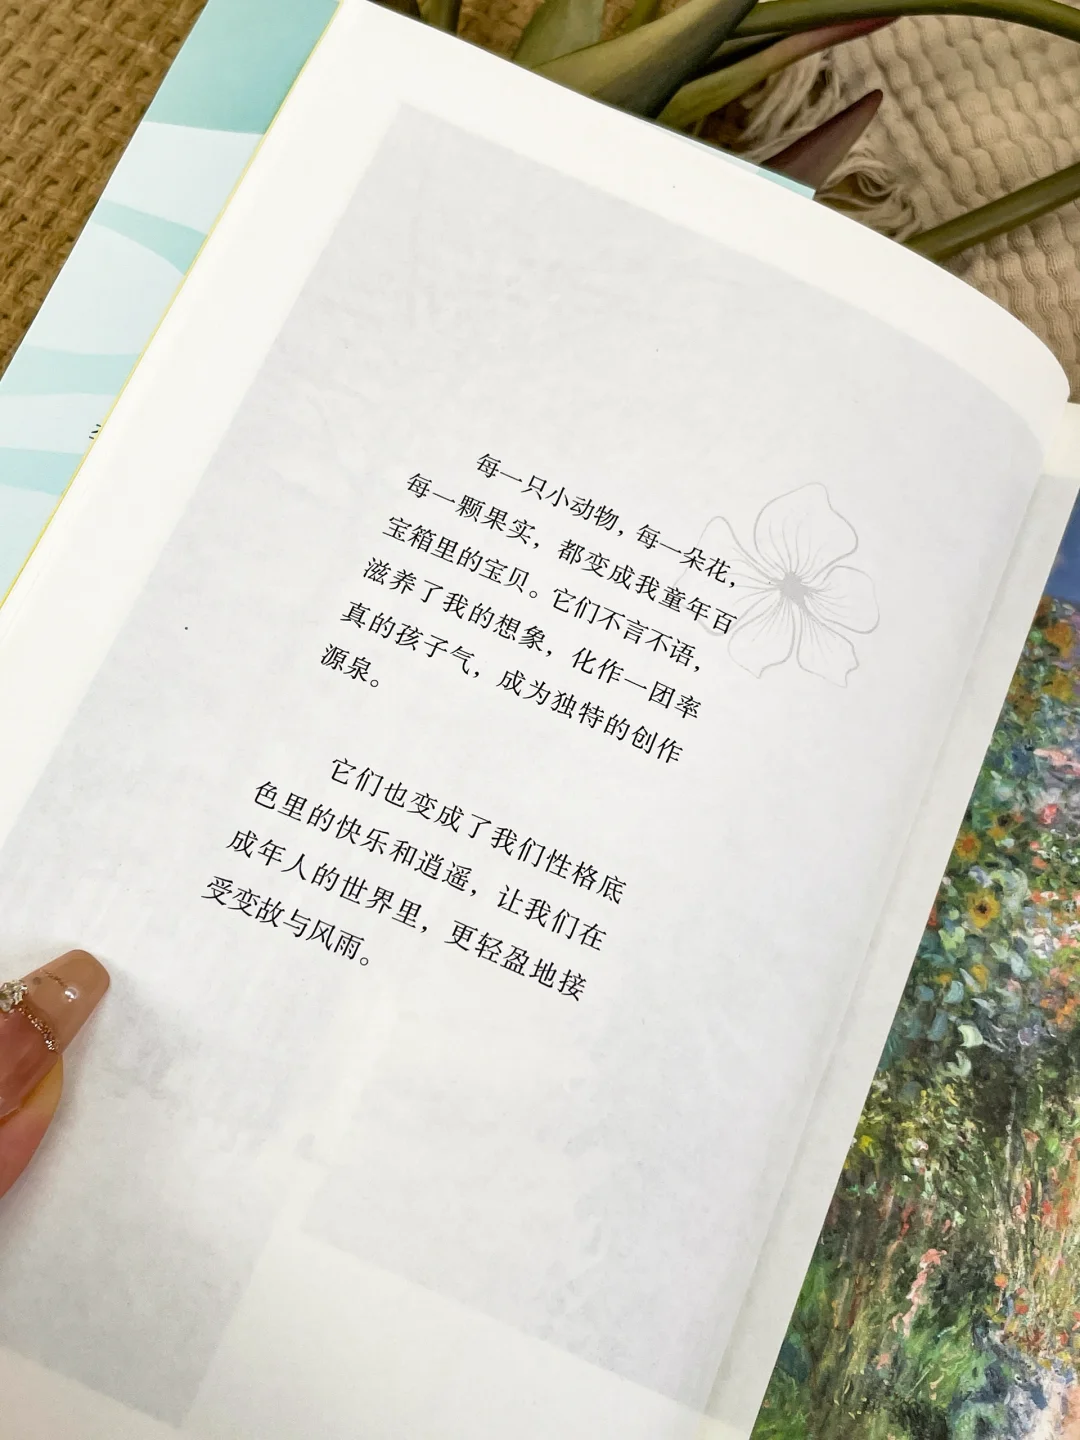 每一只小动物，每一朵花，
每一颗果实，都变成我童年百
宝箱里的宝贝。它们不言不语，
滋养了我的想象，化作一团率
真的孩子气，成为独特的创作
源泉。
它们也变成了我们性格底
色里的快乐和逍遥，让我们在
成年人的世界里，更轻盈地接
受变故与风雨。